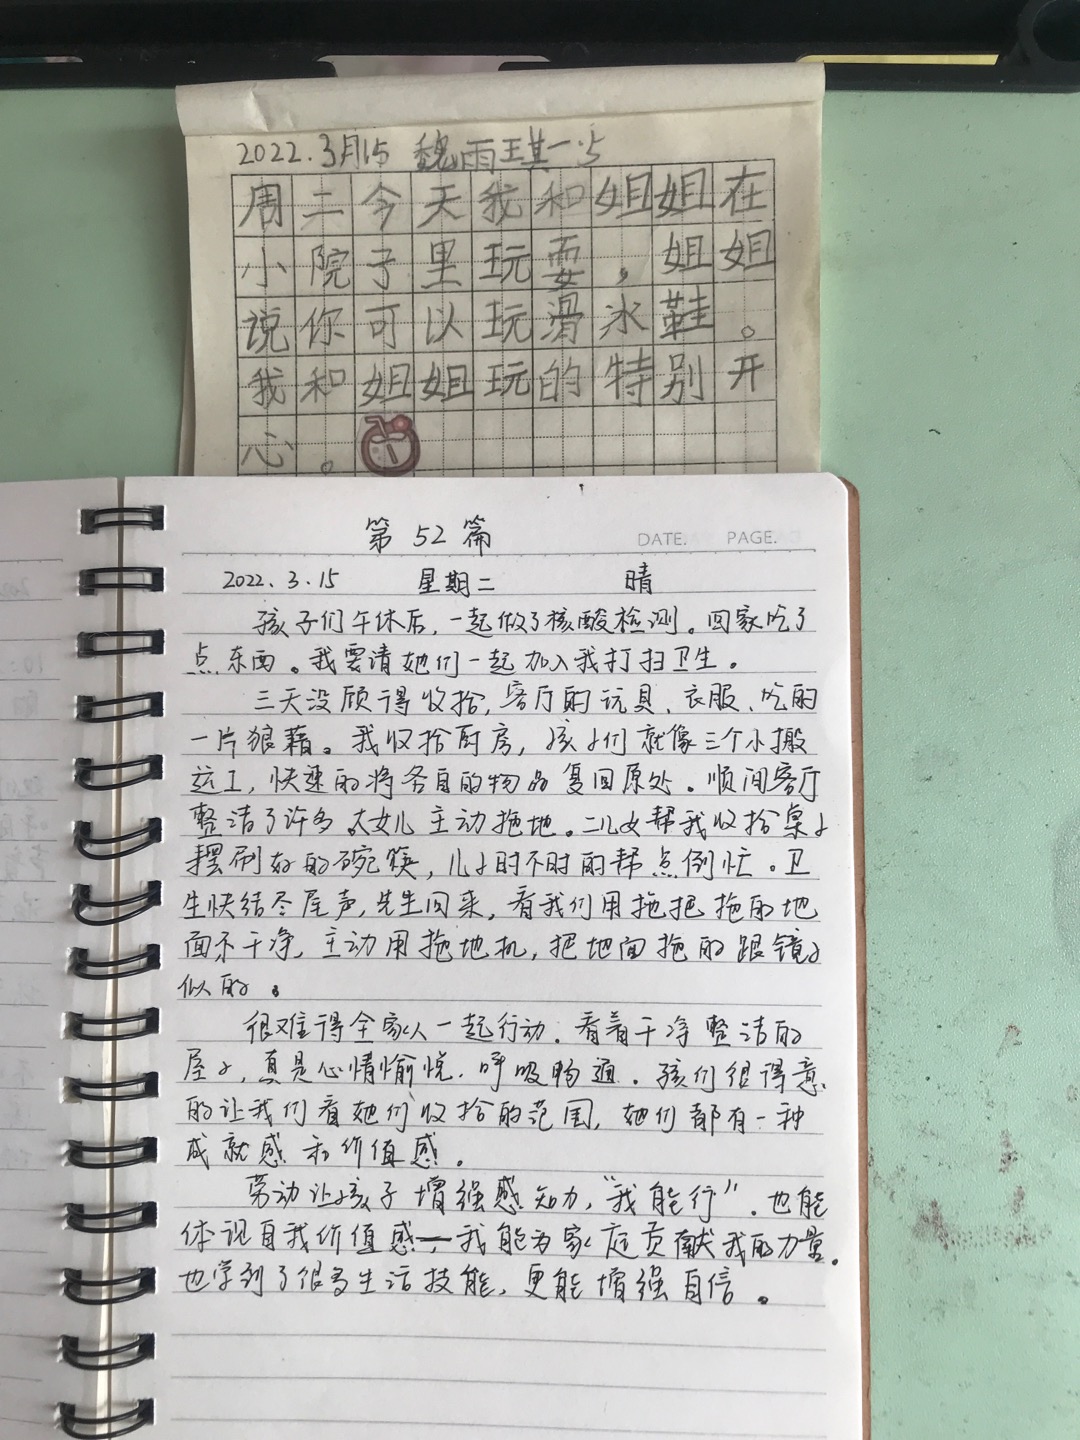 2022.3月15 魏雨琪一.5
周二今天我和姐姐在
小院子里玩耍，姐姐
说你可以玩滑氷鞋。
我和姐姐玩的特别开
心。
第 52 篇
DATE. PAGE.
2022. 3. 15 星期二 晴
孩子们午休后，一起做了核酸检测。回家吃了
点东西。我要请她们一起加入我打扫卫生。
三天没顾得收拾，客厅的玩具、衣服、吃的
一片狼藉。我收拾厨房，孩子们就像三个小搬
运工，快速的将各自的物品复回原处。顺间客厅
整洁了许多。大女儿主动拖地。二儿女帮我收拾桌子
摆刷好的碗筷，儿子时不时的帮点倒忙。卫
生快结尽尾声，先生回来，看我们用拖把拖的地
面不干净，主动用拖地机，把地面拖的跟镜子
似的。
很难得全家人一起行动。看着干净整洁的
屋子，真是心情愉悦．呼吸畅通。孩们很得意
的让我们看她们收拾的范围，她们都有一种
成就感和价值感。
劳动让孩子增强感知力，“我能行”．也能
体现自我价值感—我能为家庭贡献我的力量。
也学到了很多生活技能，更能增强自信。